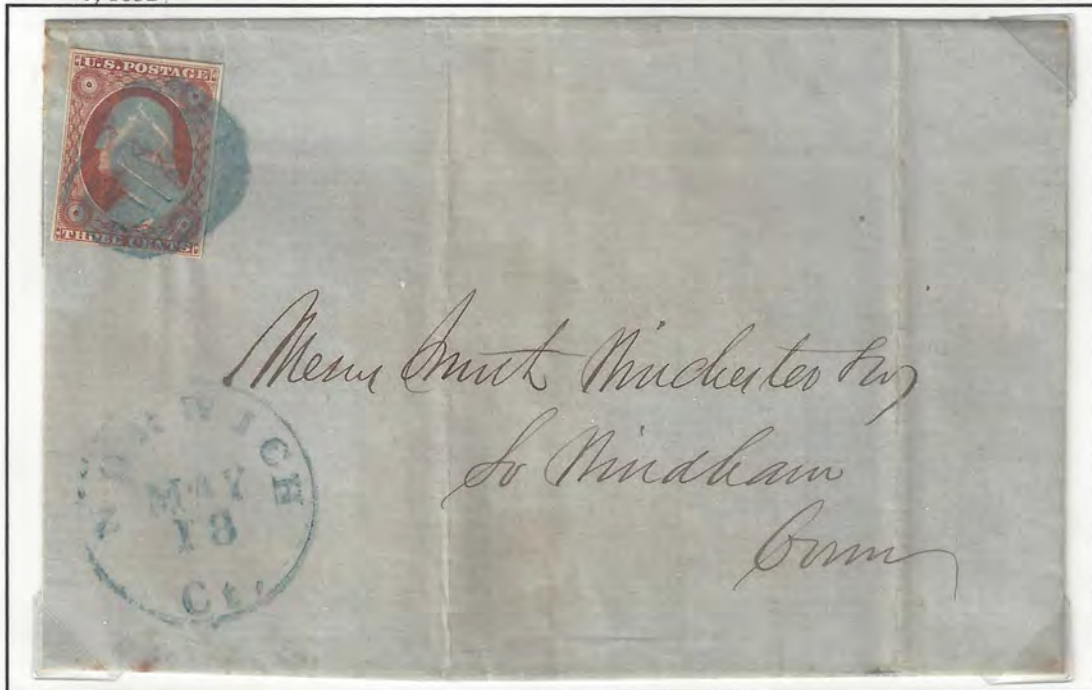 U.S. POSTAGE
THREE CENTS
Messrs Smith Winchester &
So Windham
Conn
NORWICH
MAY
18
Ct.